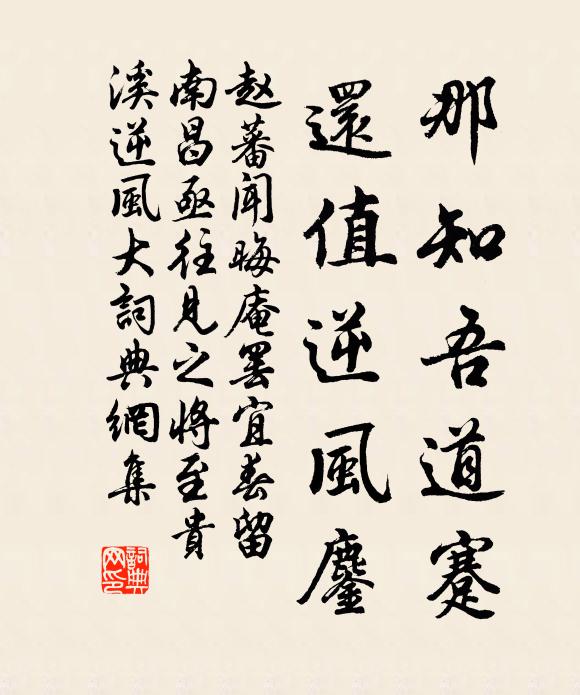 那知吾道蹇
還值逆風鏖
赵蕃聞晦庵罢宜春留
南昌亟往見之將至貴
溪逆風大詞典網集
詞典网印